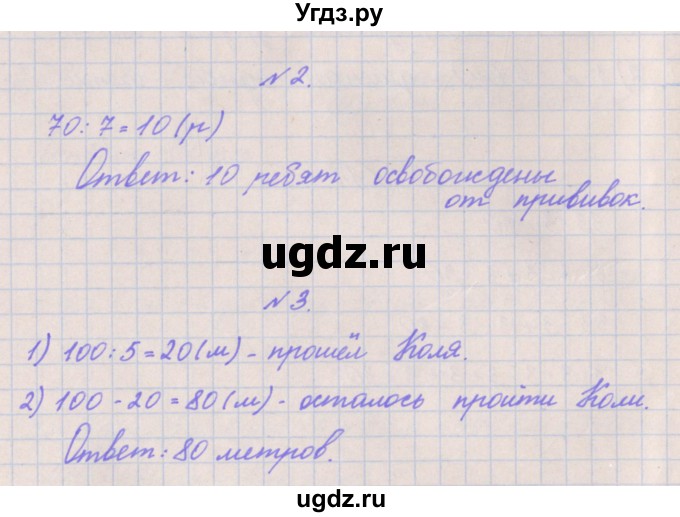 Угдз.ру
№2.
70:7=10(р)
Ответ: 10 ребят освобождены
от прививок.
ugdz.ru
№3.
1) 100:5=20(м)-прошёл Коля.
2) 100-20=80(м)-осталось пройти Коли.
Ответ: 80 метров.
ugdz.ru